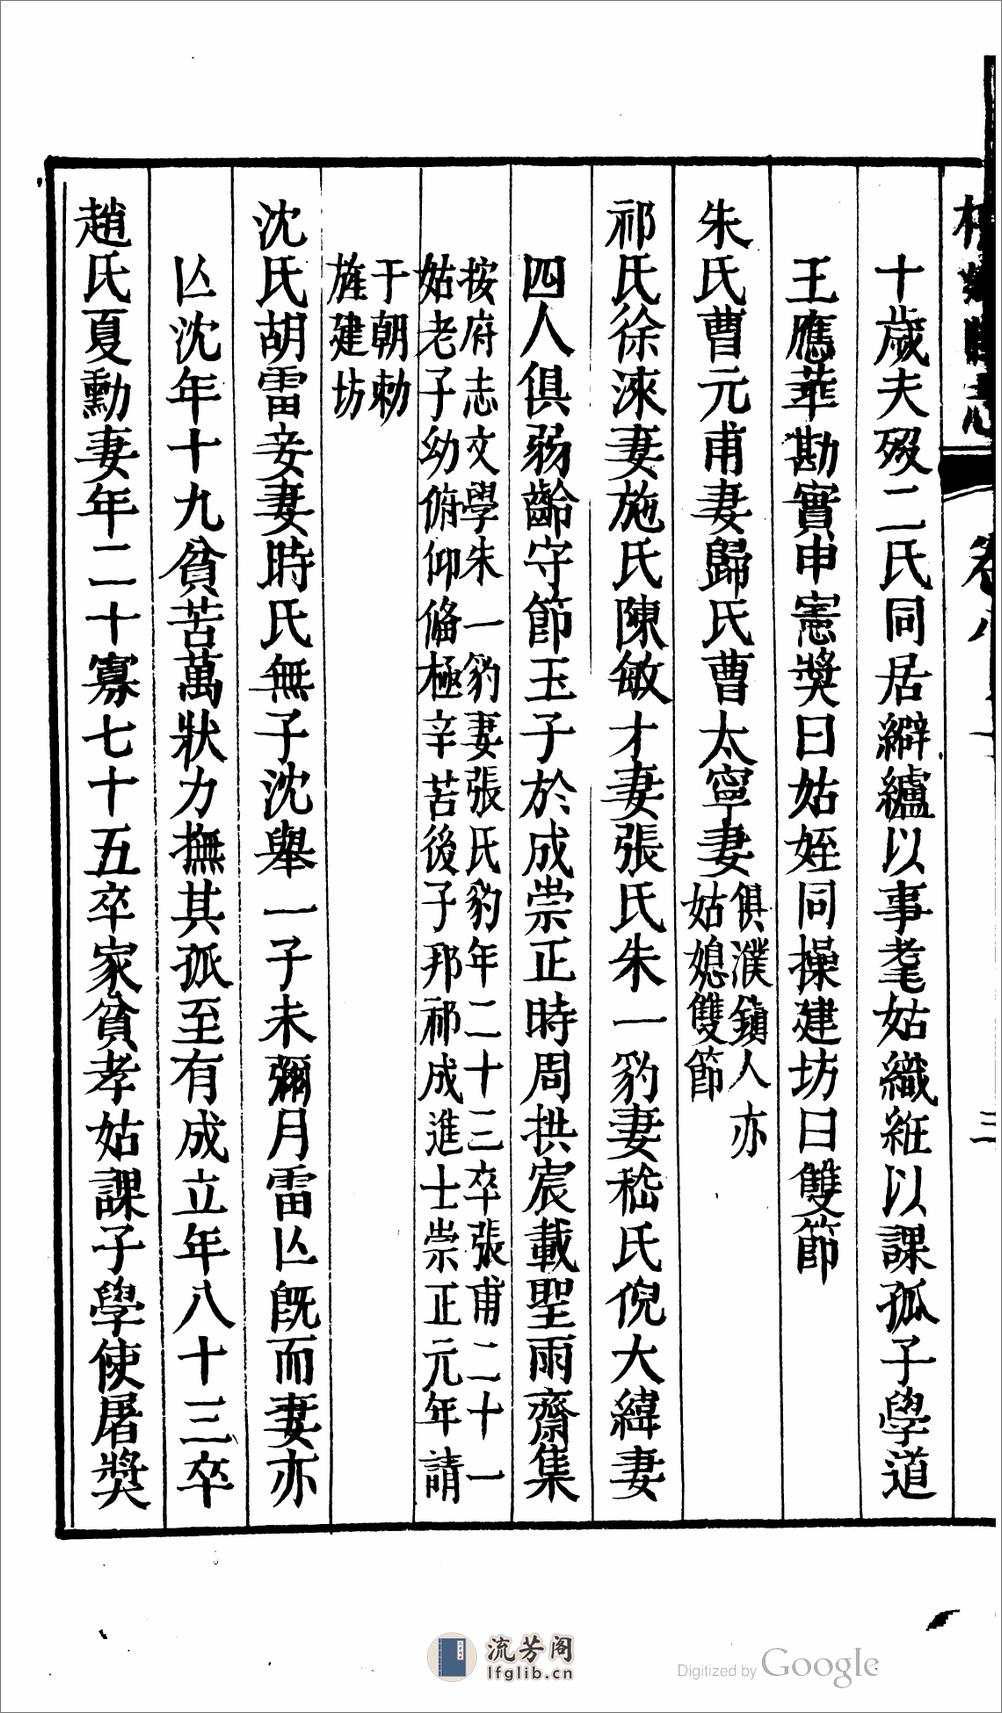 卷八
三
十歲夫歿二氏同居辮纑以事耄姑織紝以課孤子學道
王應華勘實申憲奬曰姑姪同操建坊曰雙節
朱氏曹元甫妻歸氏曹太寧妻俱濮鎮人亦姑媳雙節
祁氏徐淶妻施氏陳敏才妻張氏朱一豹妻嵇氏倪大緯妻
四人俱弱齡守節玉子於成崇正時周拱宸載聖雨齋集
按府志文學朱一豹妻張氏豹年二十三卒張甫二十一
姑老子幼俯仰偹極辛苦後子邦祁成進士崇正元年請
于朝勅
旌建坊
沈氏胡雷妾妻時氏無子沈舉一子未彌月雷亾旣而妻亦
亾沈年十九貧苦萬狀力撫其孤至有成立年八十三卒
趙氏夏勳妻年二十寡七十五卒家貧孝姑課子學使屠奬
流芳阁
lfglib.cn
Digitized by Google